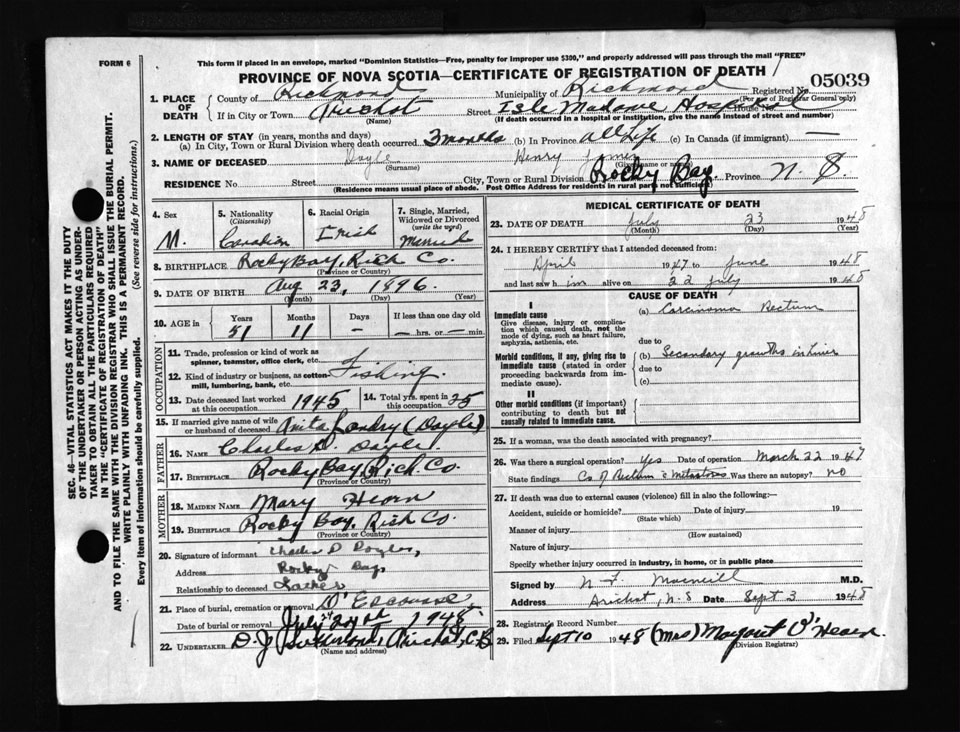 This form if placed in an envelope, marked "Dominion Statistics—Free, penalty for improper use $300," and properly addressed will pass through the mail "FREE"
FORM 6
PROVINCE OF NOVA SCOTIA—CERTIFICATE OF REGISTRATION OF DEATH
05039
Registered No.
(For use of Registrar General only)
1. PLACE OF DEATH
County of Richmond Municipality of Richmond
If in City or Town Arichat Street Isle Madame Hospital House No.
(Name) (If death occurred in a hospital or institution, give the name instead of street and number)
2. LENGTH OF STAY (in years, months and days)
(a) In City, Town or Rural Division where death occurred 3 months (b) In Province all life (c) In Canada (if immigrant) —
3. NAME OF DECEASED Doyle Henry James
(Surname) (Given name or names)
RESIDENCE No. Street City, Town or Rural Division Rocky Bay. Province N. S.
(Residence means usual place of abode. Post Office Address for residents in rural part not sufficient)
4. Sex M.
5. Nationality (Citizenship) Canadian
6. Racial Origin Irish
7. Single, Married, Widowed or Divorced (write the word) Married
8. BIRTHPLACE Rocky Bay, Rich Co.
(Province or Country)
9. DATE OF BIRTH Aug 23, 1896.
(Month) (Day) (Year)
10. AGE in Years 51 Months 11 Days — If less than one day old — hrs. or — min.
OCCUPATION
11. Trade, profession or kind of work as spinner, teamster, office clerk, etc.
12. Kind of industry or business, as cotton-mill, lumbering, bank, etc. Fishing.
13. Date deceased last worked at this occupation 1945
14. Total yrs. spent in this occupation 25
15. If married give name of wife or husband of deceased Anita Landry (Doyle)
FATHER
16. NAME Charles D. Doyle.
17. BIRTHPLACE Rocky Bay, Rich. Co.
(Province or Country)
MOTHER
18. MAIDEN NAME Mary Hearn
19. BIRTHPLACE Rocky Bay. Rich Co.
(Province or Country)
20. Signature of informant Charles D Doyle,
Address Rocky Bay,
Relationship to deceased Father
21. Place of burial, cremation or removal D'Escousse
Date of burial or removal July 1948.
22. UNDERTAKER D. J. Arichat, C.B
(Name and address)
MEDICAL CERTIFICATE OF DEATH
23. DATE OF DEATH July 23 1948
(Month) (Day) (Year)
24. I HEREBY CERTIFY that I attended deceased from:
April 1947 to June 1948
and last saw him alive on 22 July 1948
CAUSE OF DEATH
I
Immediate cause
Give disease, injury or complication which caused death, not the mode of dying, such as heart failure, asphyxia, asthenia, etc.
(a) Carcinoma Rectum
due to
Morbid conditions, if any, giving rise to immediate cause (stated in order proceeding backwards from immediate cause).
(b) Secondary growths in liver
due to
(c)
II
Other morbid conditions (if important) contributing to death but not causally related to immediate cause.
25. If a woman, was the death associated with pregnancy?
26. Was there a surgical operation? Yes Date of operation March 22 1947
State findings Ca of Rectum c Metastases Was there an autopsy? no
27. If death was due to external causes (violence) fill in also the following:—
Accident, suicide or homicide? Date of injury 19
(State which)
Manner of injury
(How sustained)
Nature of injury
Specify whether injury occurred in industry, in home, or in public place
Signed by N F Macneill M.D.
Address Arichat, N.S Date Sept 3 1948
28. Registrars Record Number
29. Filed Sept 10 1948 (Mrs) Margaret O'Hearn.
(Division Registrar)
SEC. 46—VITAL STATISTICS ACT MAKES IT THE DUTY
OF THE UNDERTAKER OR PERSON ACTING AS UNDER-
TAKER TO OBTAIN ALL THE PARTICULARS REQUIRED
IN THE "CERTIFICATE OF REGISTRATION OF DEATH"
AND TO FILE THE SAME WITH THE DIVISION REGISTRAR WHO SHALL ISSUE THE BURIAL PERMIT.
WRITE PLAINLY WITH UNFADING INK. THIS IS A PERMANENT RECORD.
Every item of information should be carefully supplied. (See reverse side for instructions.)